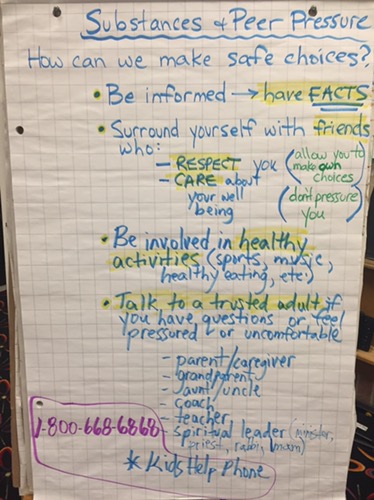 Substances & Peer Pressure
How can we make safe choices?
• Be informed → have FACTS
• Surround yourself with friends
who:
- RESPECT you (allow you to
make own
choices)
- CARE about
your well
being
(don't pressure
you)
• Be involved in healthy
activities (sports, music,
healthy eating, etc.)
• Talk to a trusted adult if
you have questions or feel
pressured or uncomfortable
- parent/caregiver
- grandparent
- aunt/uncle
- coach
- teacher
- spiritual leader (minister,
priest, rabbi, imam)
1-800-668-6868
* Kids Help Phone